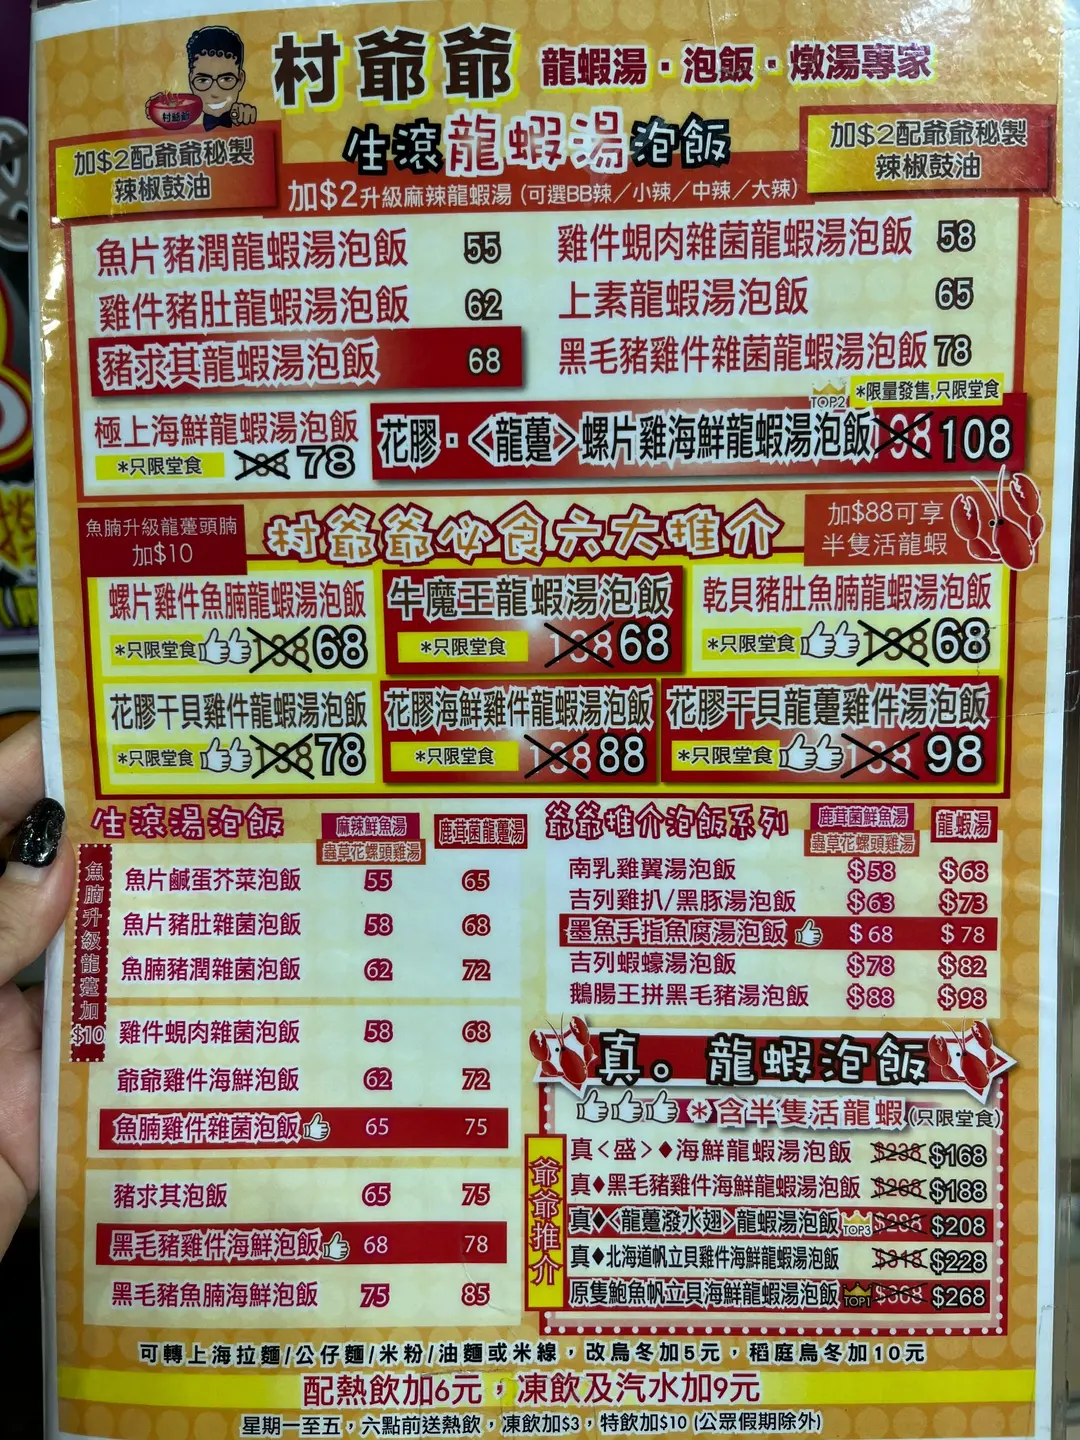 村爺爺 龍蝦湯·泡飯·燉湯專家
村爺爺
生滾龍蝦湯泡飯
加$2配爺爺秘製
辣椒豉油
加$2配爺爺秘製
辣椒豉油
加$2升級麻辣龍蝦湯 (可選BB辣/小辣/中辣/大辣)
魚片豬潤龍蝦湯泡飯 55
雞件蜆肉雜菌龍蝦湯泡飯 58
雞件豬肚龍蝦湯泡飯 62
上素龍蝦湯泡飯 65
豬求其龍蝦湯泡飯 68
黑毛豬雞件雜菌龍蝦湯泡飯 78
TOP2 *限量發售,只限堂食
極上海鮮龍蝦湯泡飯
*只限堂食 188 78
花膠·<龍躉>螺片雞海鮮龍蝦湯泡飯 198 108
魚腩升級龍躉頭腩
加$10
村爺爺必食六大推介
加$88可享
半隻活龍蝦
螺片雞件魚腩龍蝦湯泡飯
*只限堂食 138 68
牛魔王龍蝦湯泡飯
*只限堂食 138 68
乾貝豬肚魚腩龍蝦湯泡飯
*只限堂食 138 68
花膠干貝雞件龍蝦湯泡飯
*只限堂食 138 78
花膠海鮮雞件龍蝦湯泡飯
*只限堂食 138 88
花膠干貝龍躉雞件湯泡飯
*只限堂食 138 98
生滾湯泡飯
麻辣鮮魚湯
蟲草花螺頭雞湯
鹿茸菌龍躉湯
魚腩升級龍躉加$10
魚片鹹蛋芥菜泡飯 55 65
魚片豬肚雜菌泡飯 58 68
魚腩豬潤雜菌泡飯 62 72
雞件蜆肉雜菌泡飯 58 68
爺爺雞件海鮮泡飯 62 72
魚腩雞件雜菌泡飯 65 75
豬求其泡飯 65 75
黑毛豬雞件海鮮泡飯 68 78
黑毛豬魚腩海鮮泡飯 75 85
爺爺推介泡飯系列
鹿茸菌鮮魚湯
蟲草花螺頭雞湯
龍蝦湯
南乳雞翼湯泡飯 $58 $68
吉列雞扒/黑豚湯泡飯 $63 $73
墨魚手指魚腐湯泡飯 $68 $78
吉列蝦蠔湯泡飯 $78 $82
鵝腸王拼黑毛豬湯泡飯 $88 $98
真。龍蝦泡飯
*含半隻活龍蝦(只限堂食)
爺爺推介
真<盛>♦海鮮龍蝦湯泡飯 $238 $168
真♦黑毛豬雞件海鮮龍蝦湯泡飯 $268 $188
真♦<龍躉潑水翅>龍蝦湯泡飯 TOP3 $288 $208
真♦北海道帆立貝雞件海鮮龍蝦湯泡飯 $318 $228
原隻鮑魚帆立貝海鮮龍蝦湯泡飯 TOP1 $368 $268
可轉上海拉麵/公仔麵/米粉/油麵或米線,改烏冬加5元,稻庭烏冬加10元
配熱飲加6元,凍飲及汽水加9元
星期一至五,六點前送熱飲,凍飲加$3,特飲加$10 (公眾假期除外)